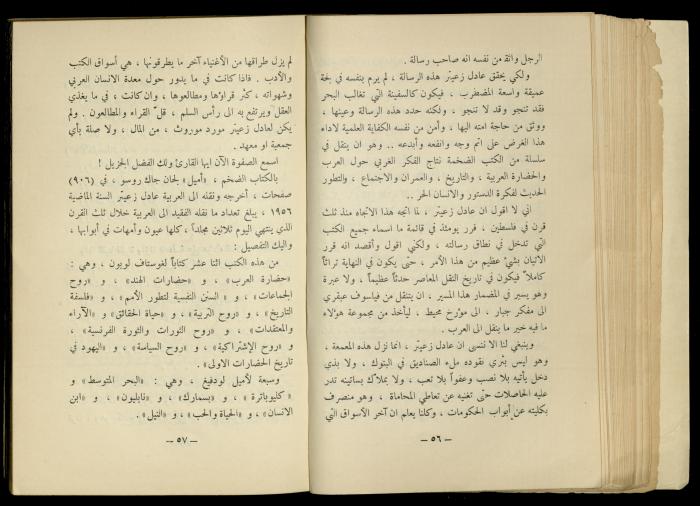 الرجل واثقة من نفسه انه صاحب رسالة .
ولكي يحقق عادل زعيتر هذه الرسالة ، لم يرم بنفسه في لجة
عميقة واسعة المضطرب ، فيكون كالسفينة التي تغالب البحر
فقد تنجو وقد لا تنجو ، ولكنه حدد هذه الرسالة وعينها ،
ووثق من حاجة امته اليها ، وأمن من نفسه الكفاية العلمية لاداء
هذا الغرض على اتم وجه وانفعه وأبدعه .. وهو ان ينتقل في
سلسلة من الكتب الضخمة نتاج الفكر الغربي حول العرب
والحضارة العربية ، والتاريخ ، والعمران والاجتماع ، والتطور
الحديث لفكرة الدستور والانسان الحر ..
اني لا اقول ان عادل زعيتر ، لما اتجه هذا الاتجاه منذ ثلث
قرن في فلسطين ، قرر يومئذ في قائمة ما اسماء جميع الكتب
التي تدخل في نطاق رسالته ، ولكني اقول وأقصد انه قرر
الاتيان بشيء عظيم من هذا الأمر ، حتى يكون في النهاية تراثاً
كاملاً فيكون في تاريخ النقل المعاصر حدثاً عظيماً ، ولا عبرة
وهو يسير في المضمار هذا المسير ، ان يتنقل من فيلسوف عبقري
الى مفكر جبار ، الى مؤرخ محيط ، ليأخذ من مجموعة هؤلاء
ما فيه خير ما ينقل الى العرب .
وينبغي لنا الا ننسى ان عادل زعيتر ، انما نزل هذه المعمعة ،
وهو ليس بثري نقوده ملء الصناديق في البنوك ، ولا بذي
دخل يأتيه بلا نصب وعفواً بلا تعب ، ولا بملاك بساتينه تدر
عليه الحاصلات حتى تغنيه عن تعاطي المحاماة ، وهو منصرف
بكليته عن أبواب الحكومات ، وكلنا يعلم ان آخر الأسواق التي
— ٥٦ —
لم يزل طراقها من الأغنياء آخر ما يطرقونها ، هي أسواق الكتب
والأدب . فاذا كانت في ما يدور حول معدة الانسان العربي
وشهواته ، كثر قراؤها ومطالعوها ، وان كانت ، في ما يغذي
العقل ويرتفع به الى رأس السلم ، قلّ القراء والمطالعون . ولم
يكن لعادل زعيتر مورد موروث ، من المال ، ولا صلة بأي
جمعية او معهد .
اسمع الصفوة الآن ايها القارئ ولك الفضل الجزيل !
بالكتاب الضخم ، «أميل» لجان جاك روسو ، في (٩٠٦)
صفحات ، أخرجه ونقله الى العربية عادل زعيتر السنة الماضية
١٩٥٦ ، يبلغ تعداد ما نقله الفقيد الى العربية خلال ثلث القرن
الذي ينتهي اليوم ثلاثين مجلداً ، كلها عيون وأمهات في أبوابها ،
واليك التفصيل :
من هذه الكتب اثنا عشر كتاباً لغوستاف لوبون ، وهي :
«حضارة العرب» ، و «حضارات الهند» ، و «روح
الجماعات» ، و «السنن النفسية لتطور الأمم» ، و «فلسفة
التاريخ» ، و «روح التربية» ، و «حياة الحقائق» ، و «الآراء
والمعتقدات» ، و «روح الثورات والثورة الفرنسية» ،
و «روح الإشتراكية» ، و «روح السياسة» ، و «اليهود في
تاريخ الحضارات الاولى» .
وسبعة لأميل لودفيغ ، وهي : «البحر المتوسط» و
«كليوباترة» ، و «بسمارك» ، و «نابليون» ، و «ابن
الانسان» ، و «الحياة والحب» ، و «النيل» .
— ٥٧ —